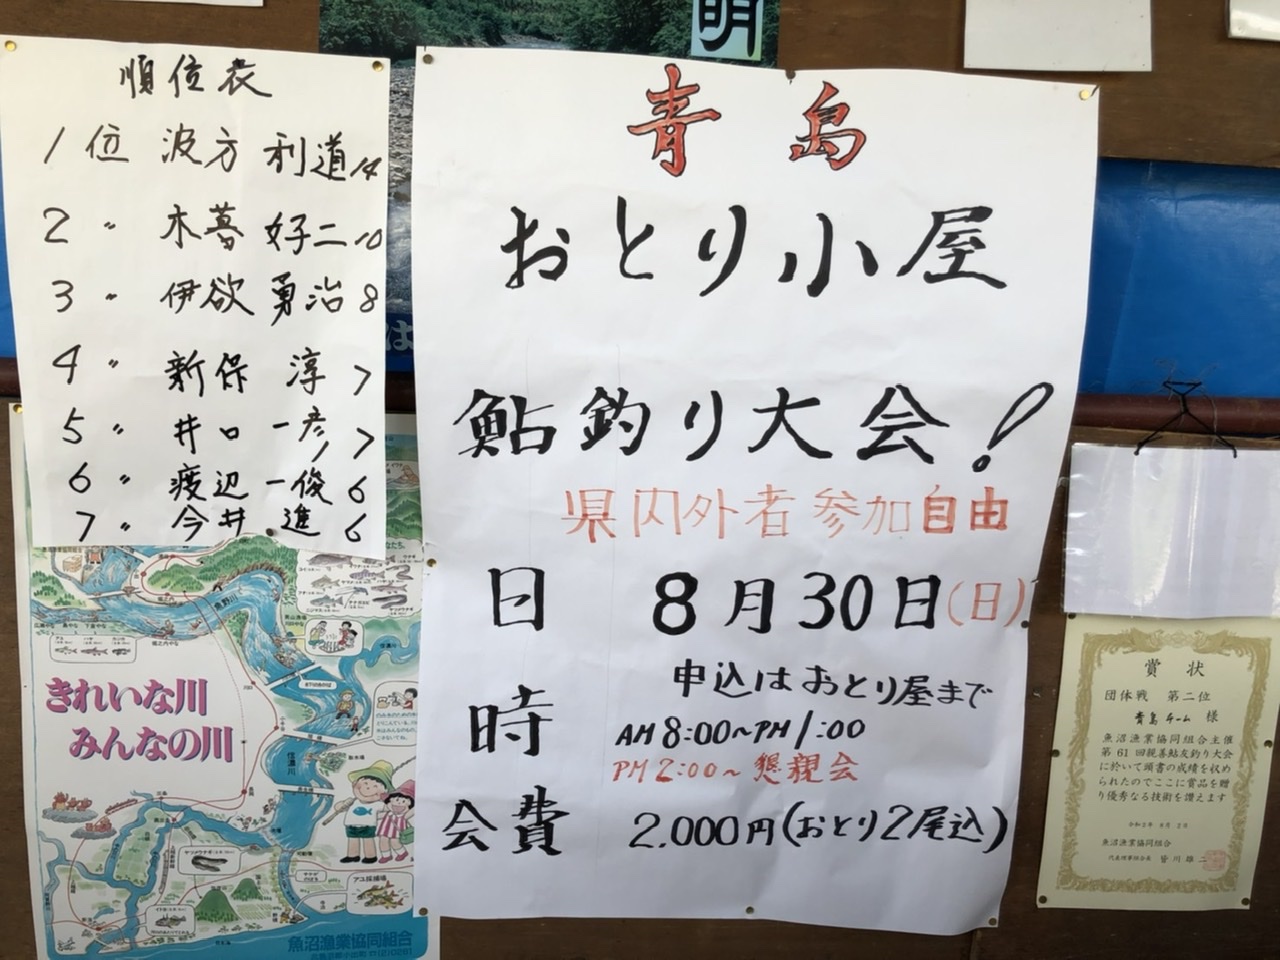 明
順位表
1位 波方 利道 14
2〃 木暮 好二 10
3〃 伊欲 勇治 8
4〃 新保 淳 7
5〃 井口 一彦 7
6〃 渡辺 一俊 6
7〃 今井 進 6
は
青島
おとり小屋
鮎釣り大会!
県内外者参加自由
日 8月30日(日)
申込はおとり屋まで
時 AM8:00~PM1:00
PM2:00~懇親会
会費 2.000円(おとり2尾込)
魚野川
きれいな川
みんなの川
信濃川
アユ採捕場
魚沼漁業協同組合
賞状
団体戦 第二位
青島チーム 様
魚沼漁業協同組合主催
第61回親善鮎友釣り大会
に於いて頭書の成績を収め
られたのでここに賞品を贈
り優秀なる技術を讃えます
魚沼漁業協同組合
代表理事組合長 皆川雄二